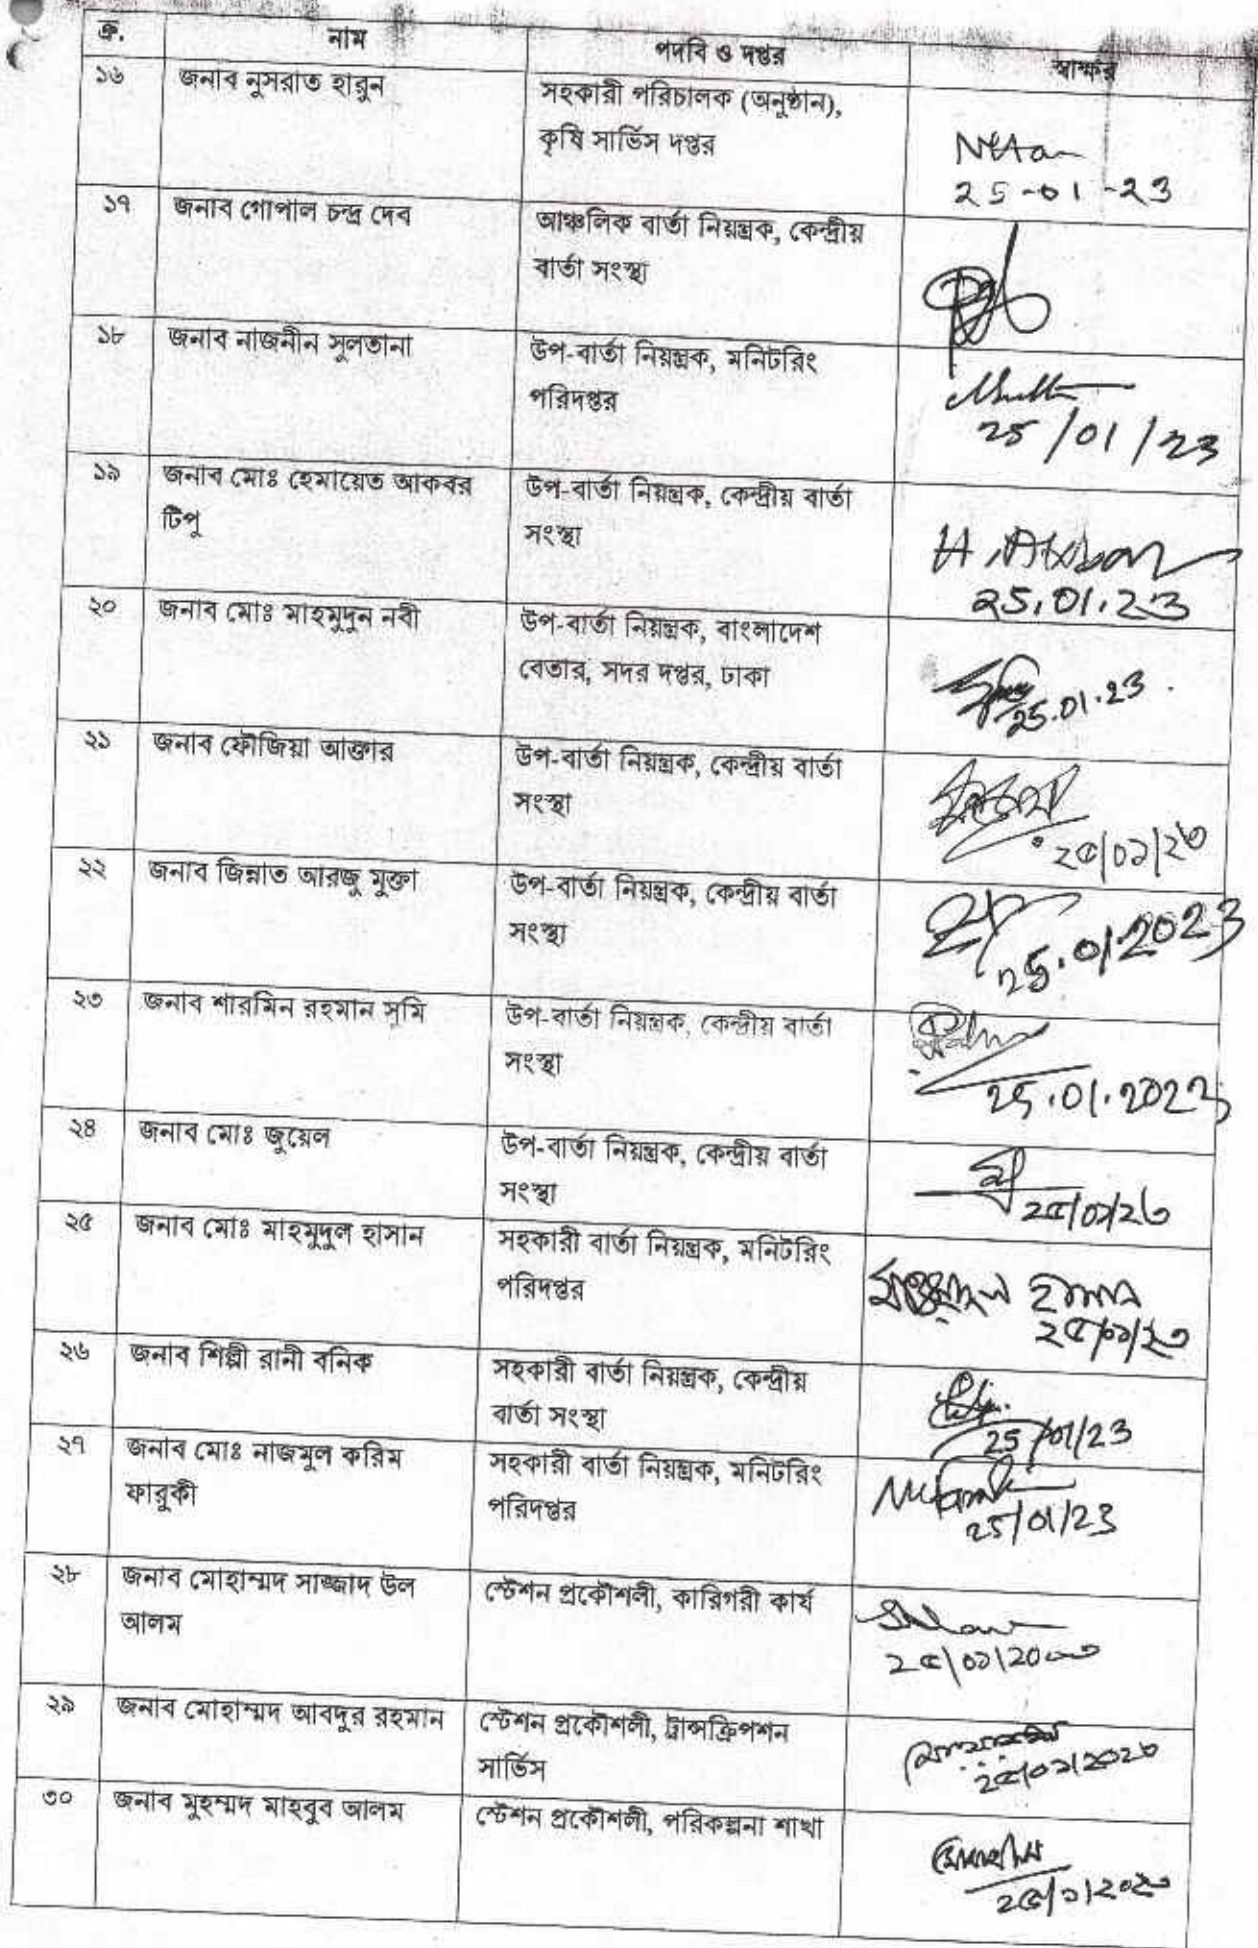 ক্র. নাম পদবি ও দপ্তর স্বাক্ষর
১৬ জনাব নুসরাত হারুন সহকারী পরিচালক (অনুষ্ঠান),
কৃষি সার্ভিস দপ্তর
25-01-23
১৭ জনাব গোপাল চন্দ্র দেব আঞ্চলিক বার্তা নিয়ন্ত্রক, কেন্দ্রীয়
বার্তা সংস্থা
১৮ জনাব নাজনীন সুলতানা উপ-বার্তা নিয়ন্ত্রক, মনিটরিং
পরিদপ্তর
25/01/23
১৯ জনাব মোঃ হেমায়েত আকবর উপ-বার্তা নিয়ন্ত্রক, কেন্দ্রীয় বার্তা
টিপু সংস্থা
H. Akbar
25.01.23
২০ জনাব মোঃ মাহমুদুন নবী উপ-বার্তা নিয়ন্ত্রক, বাংলাদেশ
বেতার, সদর দপ্তর, ঢাকা
25.01.23
২১ জনাব ফৌজিয়া আক্তার উপ-বার্তা নিয়ন্ত্রক, কেন্দ্রীয় বার্তা
সংস্থা
২৫/০১/২৩
২২ জনাব জিন্নাত আরজু মুক্তা উপ-বার্তা নিয়ন্ত্রক, কেন্দ্রীয় বার্তা
সংস্থা
25.01.2023
২৩ জনাব শারমিন রহমান সুমি উপ-বার্তা নিয়ন্ত্রক, কেন্দ্রীয় বার্তা
সংস্থা
25.01.2023
২৪ জনাব মোঃ জুয়েল উপ-বার্তা নিয়ন্ত্রক, কেন্দ্রীয় বার্তা
সংস্থা
২৫/০১/২৩
২৫ জনাব মোঃ মাহমুদুল হাসান সহকারী বার্তা নিয়ন্ত্রক, মনিটরিং
পরিদপ্তর
মাহমুদুল হাসান
২৫/০১/২৩
২৬ জনাব শিল্পী রানী বনিক সহকারী বার্তা নিয়ন্ত্রক, কেন্দ্রীয়
বার্তা সংস্থা
25/01/23
২৭ জনাব মোঃ নাজমুল করিম সহকারী বার্তা নিয়ন্ত্রক, মনিটরিং
ফারুকী পরিদপ্তর
25/01/23
২৮ জনাব মোহাম্মদ সাজ্জাদ উল স্টেশন প্রকৌশলী, কারিগরী কার্য
আলম
২৫/০১/২০২৩
২৯ জনাব মোহাম্মদ আবদুর রহমান স্টেশন প্রকৌশলী, ট্রান্সক্রিপশন
সার্ভিস
২৫/০১/২০২৩
৩০ জনাব মুহম্মদ মাহবুব আলম স্টেশন প্রকৌশলী, পরিকল্পনা শাখা
২৫/১/২০২৩